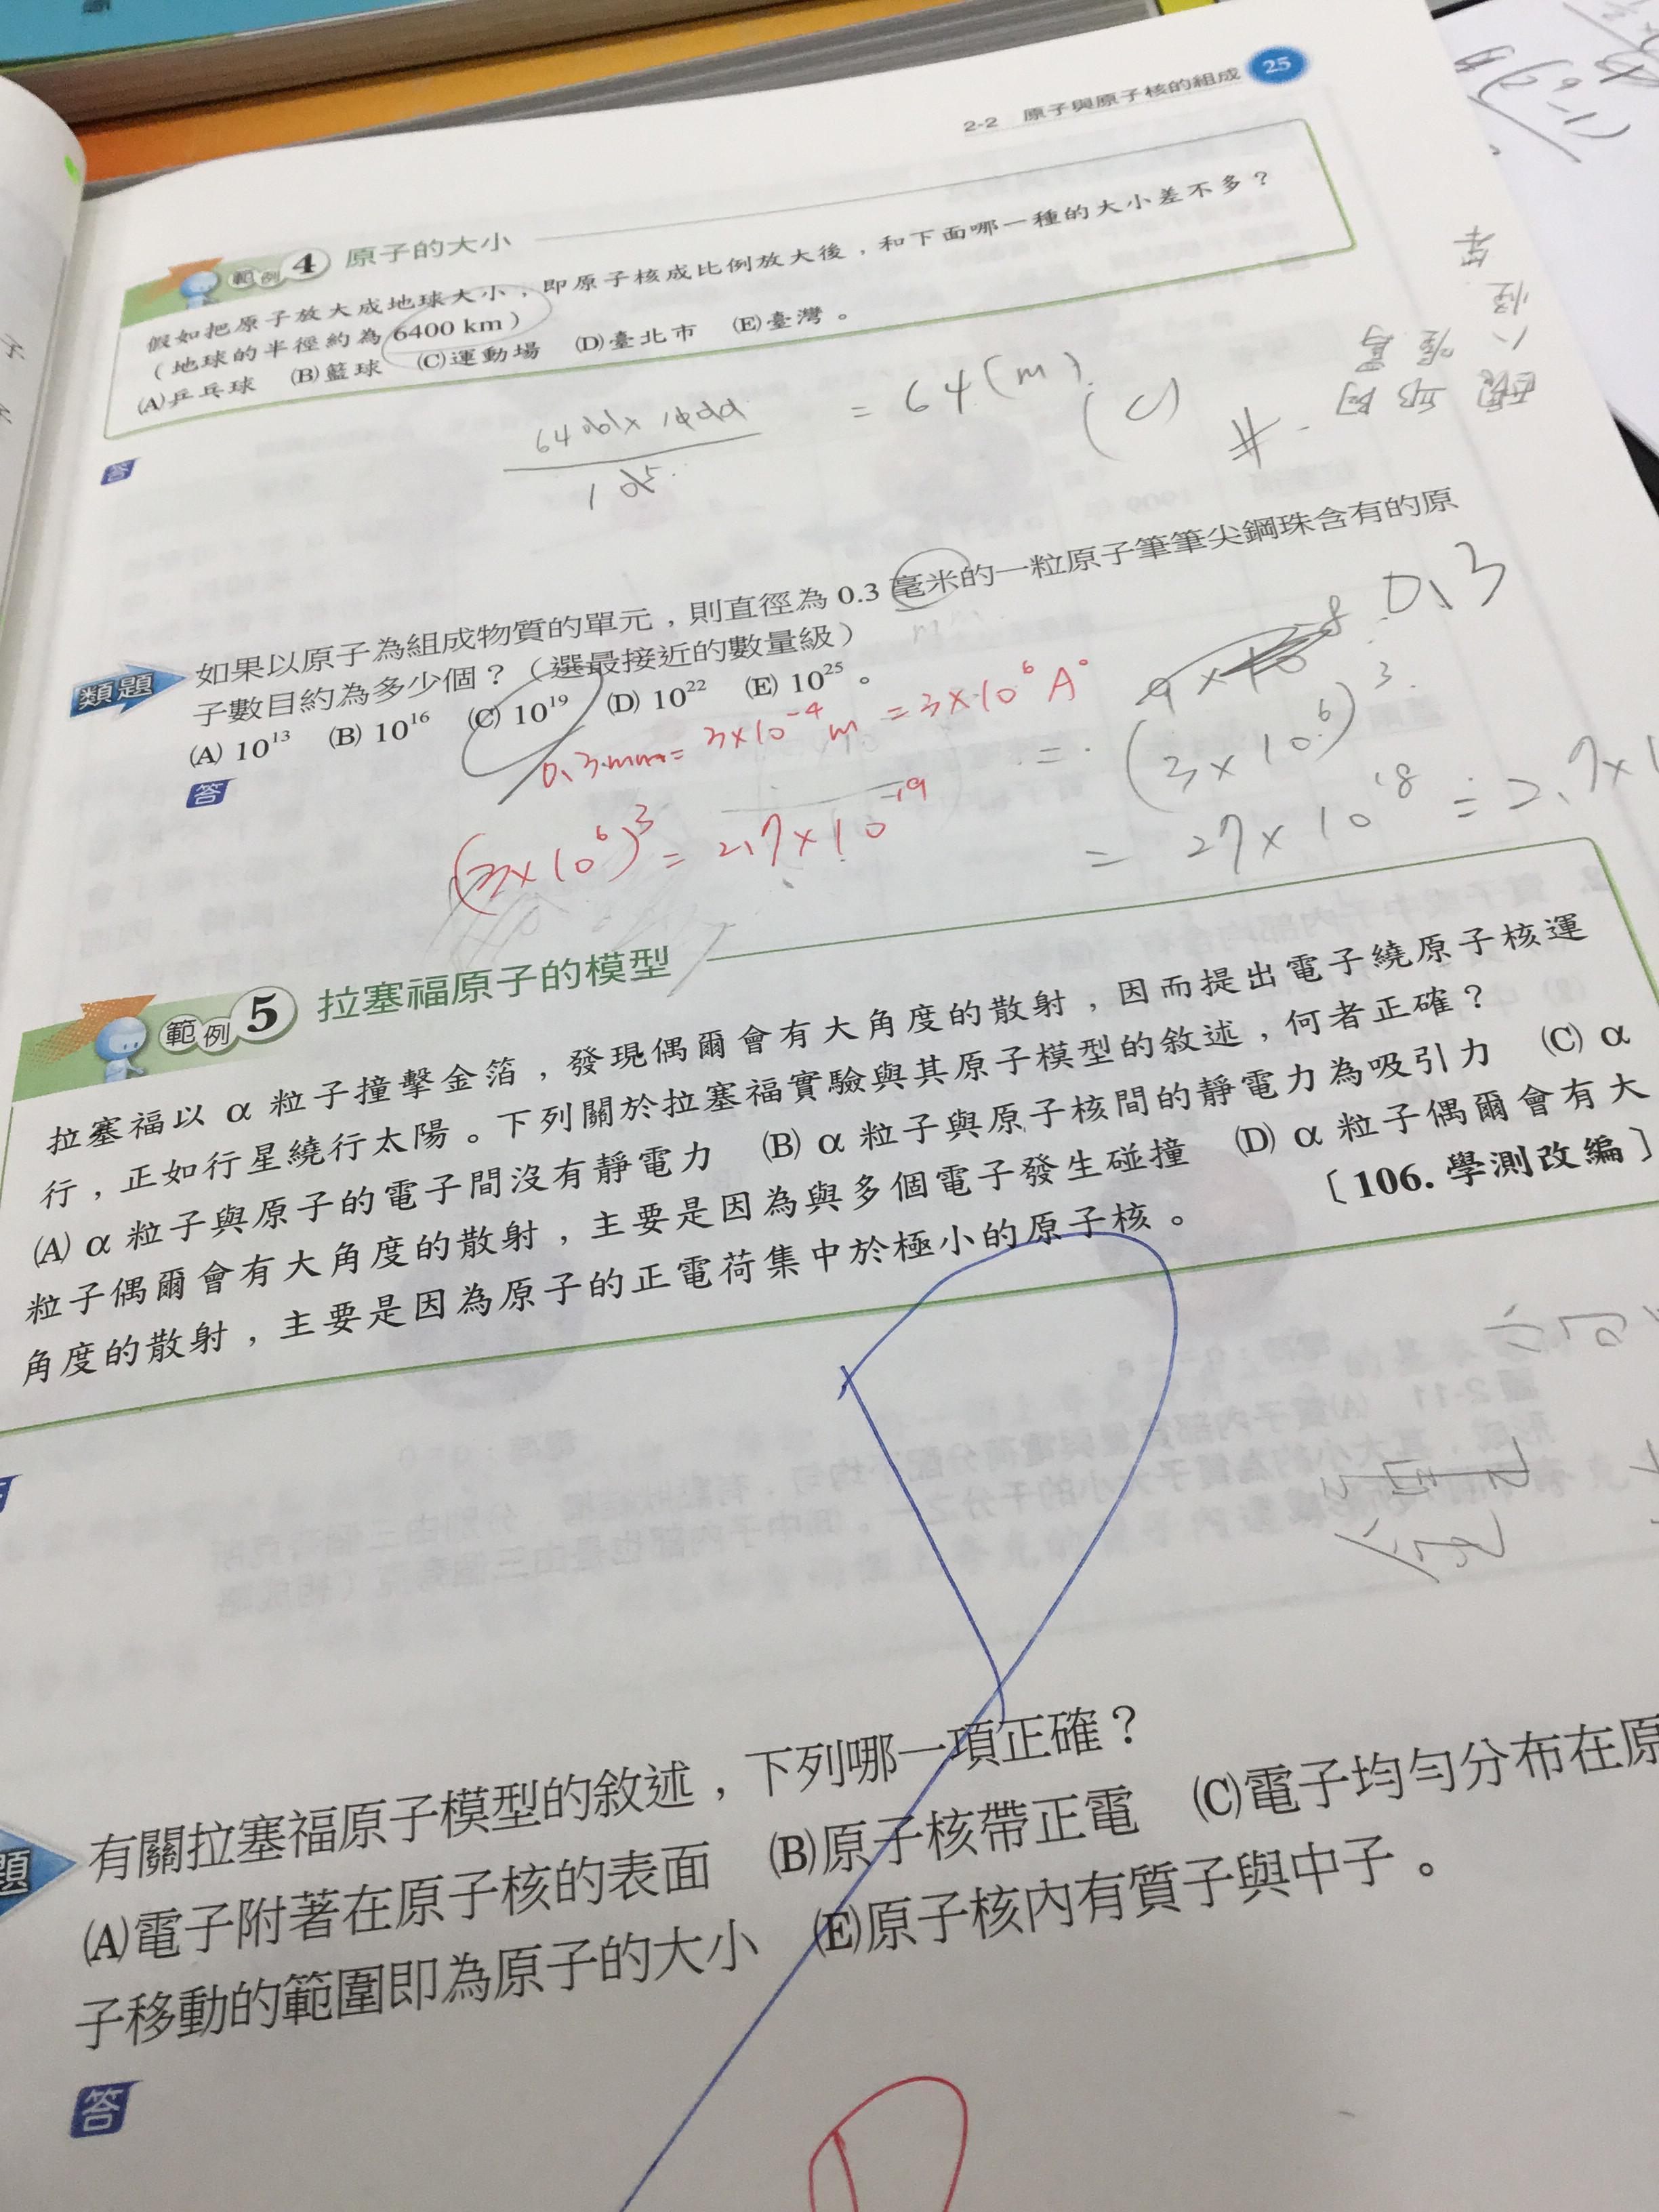 2-2 原子與原子核的組成 25
範例 4 原子的大小
假如把原子放大成地球大小，即原子核成比例放大後，和下面哪一種的大小差不多？
（地球的半徑約為 6400 km）
(A)乒乓球 (B)籃球 (C)運動場 (D)臺北市 (E)臺灣。
答
= 64 (m)
(C)
類題 如果以原子為組成物質的單元，則直徑為 0.3 毫米的一粒原子筆筆尖鋼珠含有的原
子數目約為多少個？（選最接近的數量級）
(A) 10¹³ (B) 10¹⁶ (C) 10¹⁹ (D) 10²² (E) 10²⁵。
答
0.3
0.3mm= 3×10⁻⁴ m = 3×10⁶ A°
= (3×10⁶)³
(3×10⁶)³ = 2.7×10⁻¹⁹
= 27×10¹⁸ = 2.7×1
範例 5 拉塞福原子的模型
拉塞福以 α 粒子撞擊金箔，發現偶爾會有大角度的散射，因而提出電子繞原子核運
行，正如行星繞行太陽。下列關於拉塞福實驗與其原子模型的敘述，何者正確？
(A) α 粒子與原子的電子間沒有靜電力 (B) α 粒子與原子核間的靜電力為吸引力 (C) α
粒子偶爾會有大角度的散射，主要是因為與多個電子發生碰撞 (D) α 粒子偶爾會有大
角度的散射，主要是因為原子的正電荷集中於極小的原子核。
〔106. 學測改編〕
題 有關拉塞福原子模型的敘述，下列哪一項正確？
(A)電子附著在原子核的表面 (B)原子核帶正電 (C)電子均勻分布在原
子移動的範圍即為原子的大小 (E)原子核內有質子與中子。
答